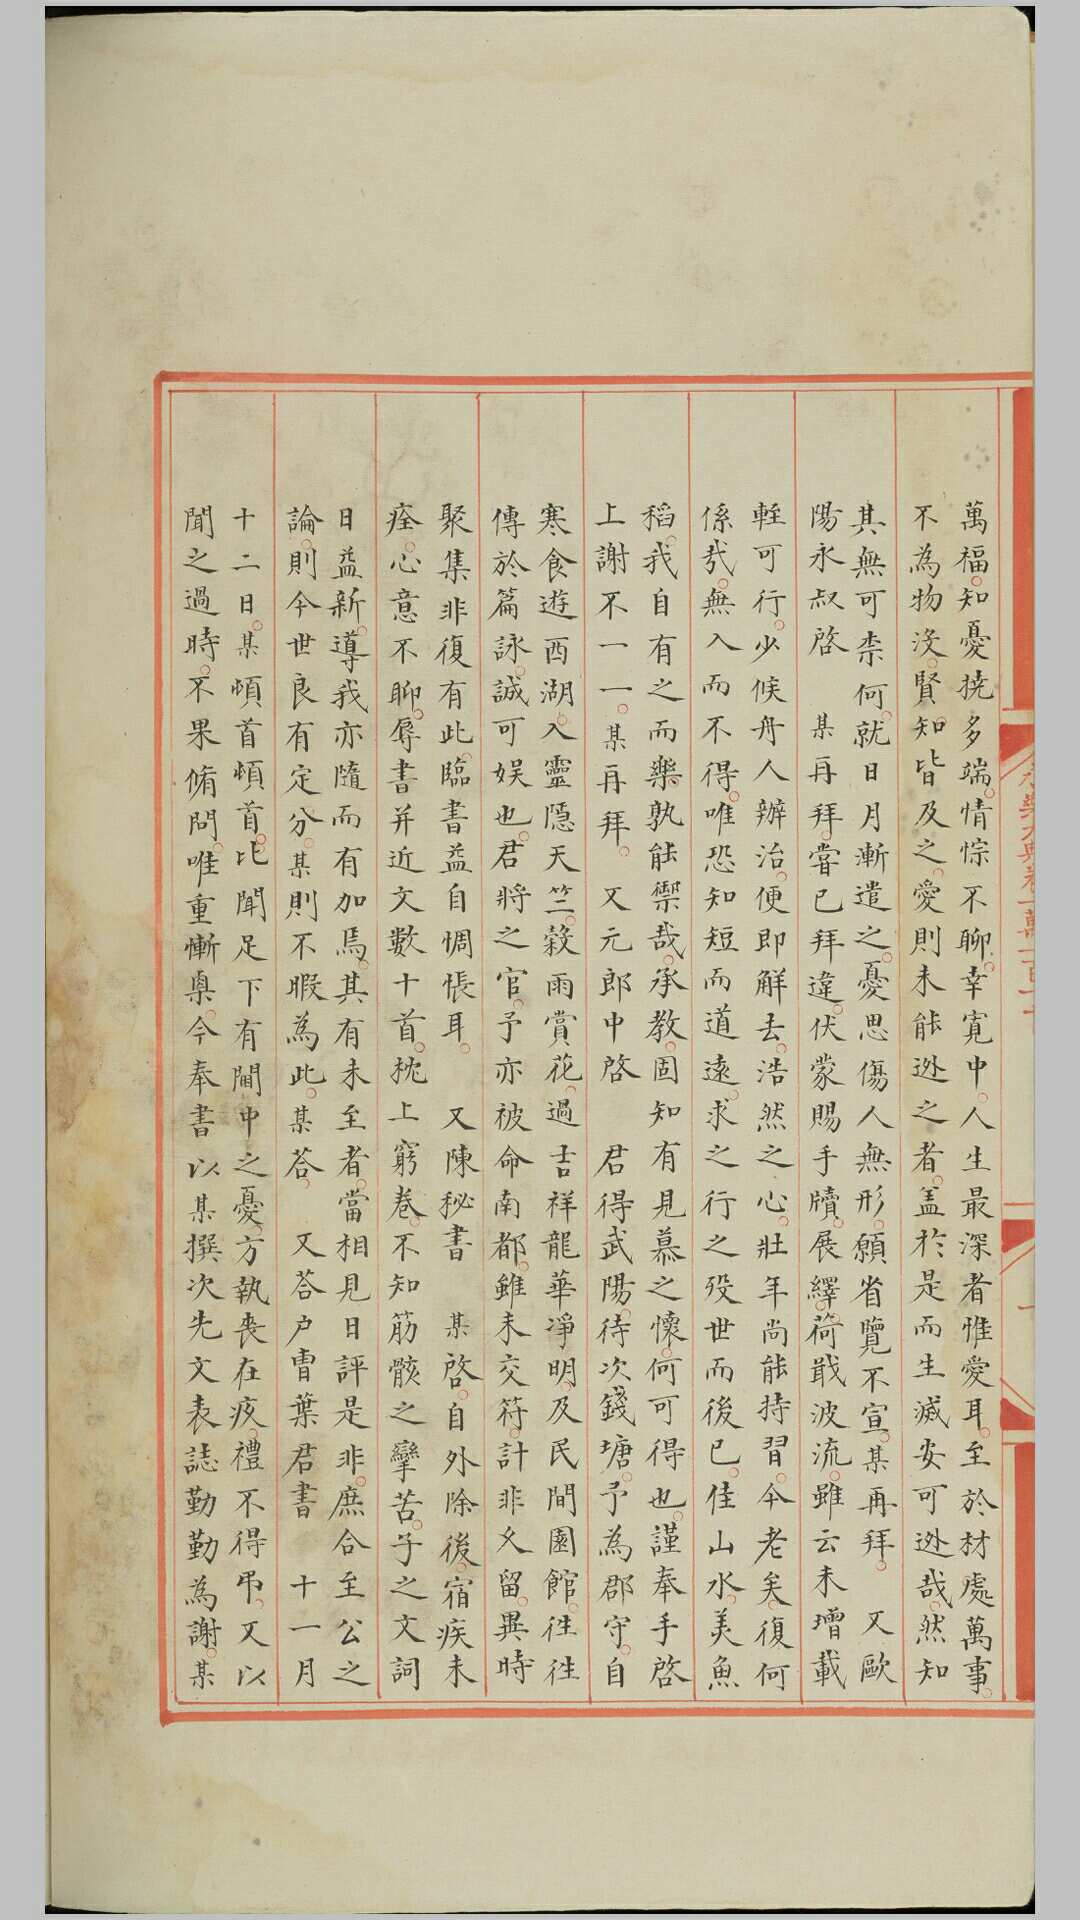 萬福。知憂撓多端。情悰不聊。幸寬中。人生最深者惟愛耳。至於材處萬事。
不為物沒。賢知皆及之。愛則未能逃之者。盖於是而生滅安可逃哉。然知
其無可柰何。就日月漸遣之。憂思傷人無形。願省覽不宣。某再拜。 又歐
陽永叔啓 某再拜。嘗已拜違。伏蒙賜手牘。展繹。荷戢波流。雖云未增載
輊可行。少候舟人辦治。便即解去。浩然之心。壯年尚能持習。今老矣。復何
係㦲。無入而不得。唯恐知短而道遠。求之行之歿世而後已。佳山水。美魚
稻。我自有之而樂。孰能禦哉。承教。固知有見慕之懷。何可得也。謹奉手啓
上謝不一一。某再拜。 又元郎中啓 君得武陽。待次錢塘。予為郡守。自
寒食遊西湖。入靈隱天竺。穀雨賞花。過吉祥龍華淨明。及民間園館。徃徃
傳於篇詠。誠可娱也。君將之官。予亦被命南都。雖未交符。計非久留。異時
聚集非復有此。臨書益自惆悵耳。 又陳秘書 某啓。自外除後。宿疾未
痊。心意不聊。辱書并近文數十首。枕上窮卷。不知筋骸之攣苦。子之文詞
日益新。導我亦隨而有加焉。其有未至者。當相見日評是非。庶合至公之
論。則今世良有定分。某則不暇為此。某荅。 又荅户曺葉君書 十一月
十二日。某頓首頓首。比聞足下有閫中之憂。方執喪在疚。禮不得弔。又以
聞之過時。不果脩問。唯重慚臬。今奉書以某撰次先文表誌勤勤為謝。某
永樂大典卷一萬一百十